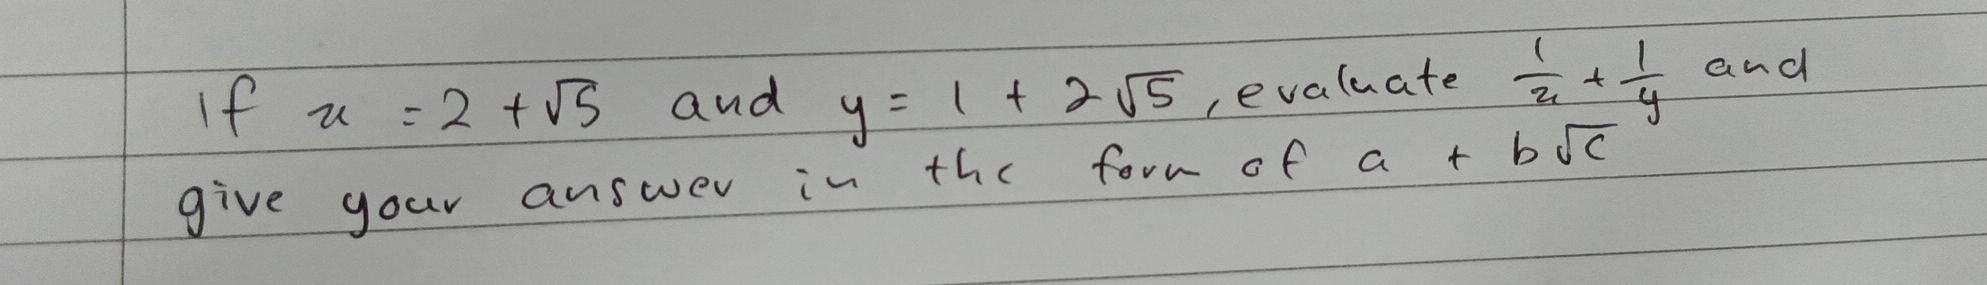 If x = 2 + √5 and y = 1 + 2√5, evaluate 1/x + 1/y and
give your answer in the form of a + b√c